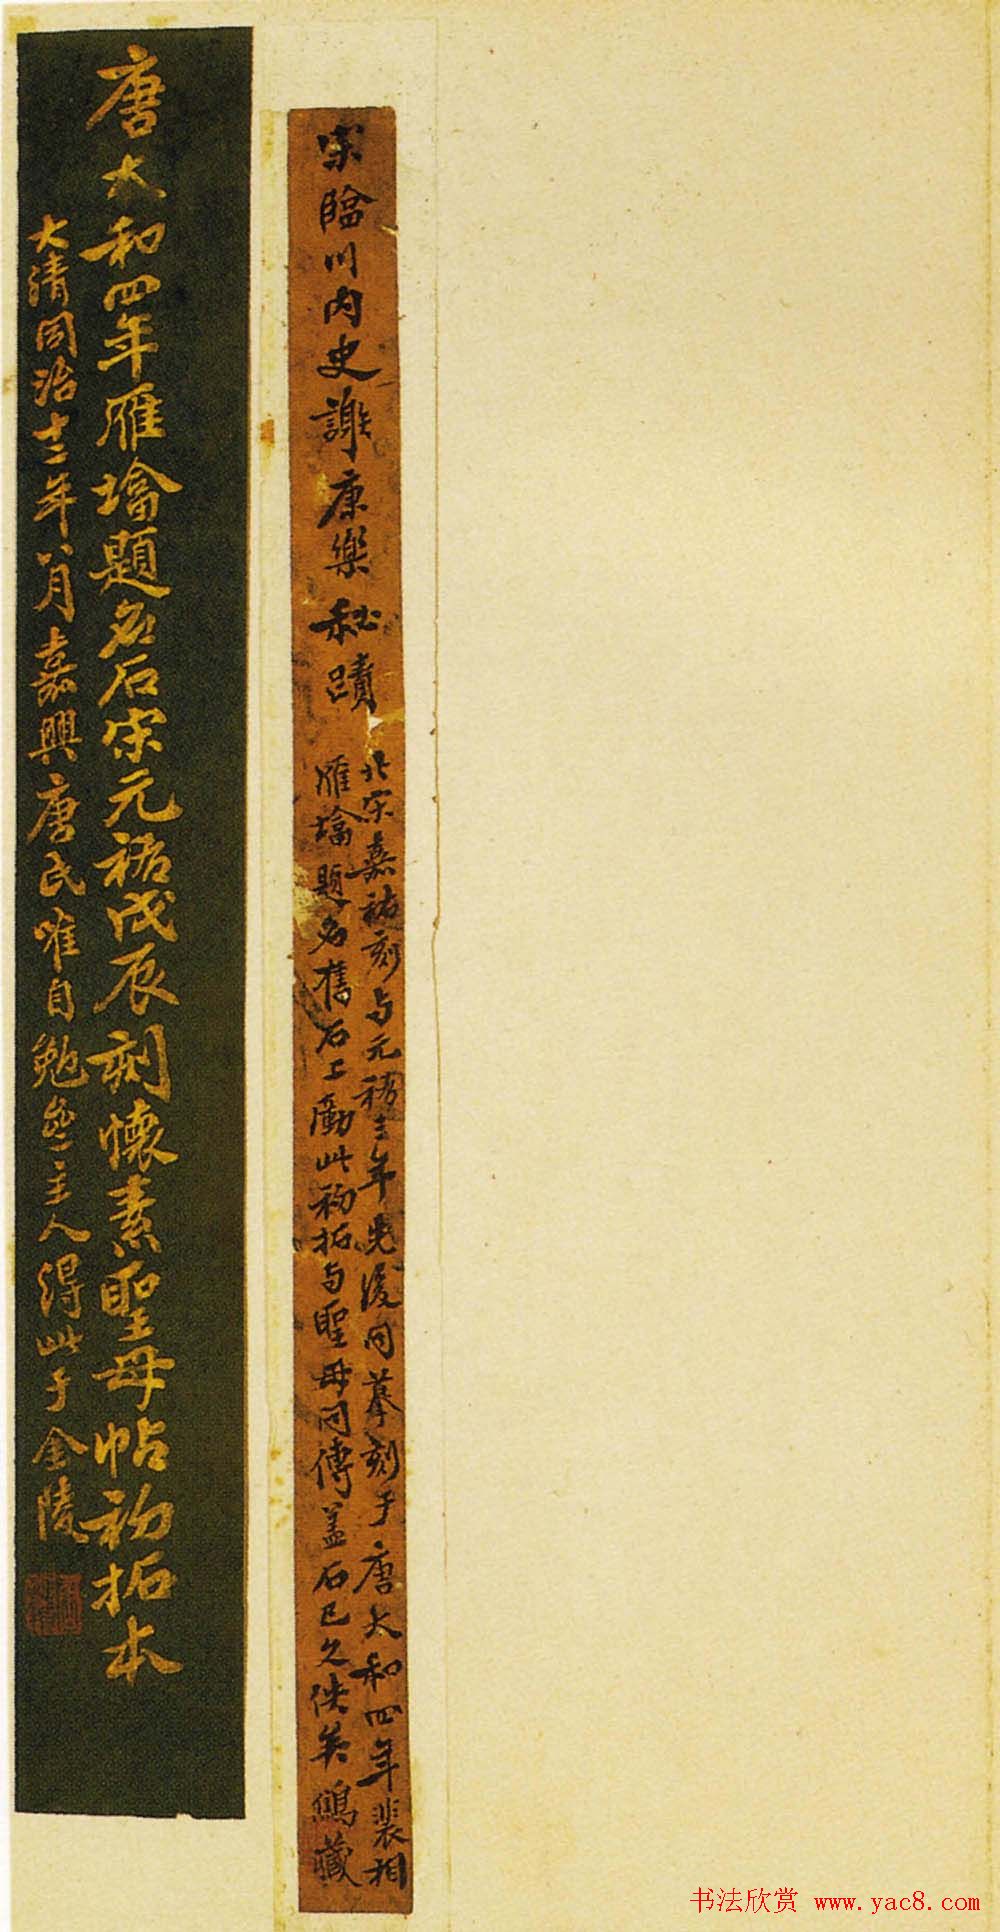 宋臨川内史謝康樂秘蹟
北宋嘉祐刻与元祐三年先後同摹刻于唐大和四年裴相
雁塔題名舊石上勵此初拓与聖母同傳蓋石已久佚矣鷦藏
唐大和四年雁塔題名石宋元祐戊辰刻懷素聖母帖初拓本
大清同治十二年八月嘉興唐氏唯自勉盦主人得此于金陵
书法欣赏 www.yac8.com